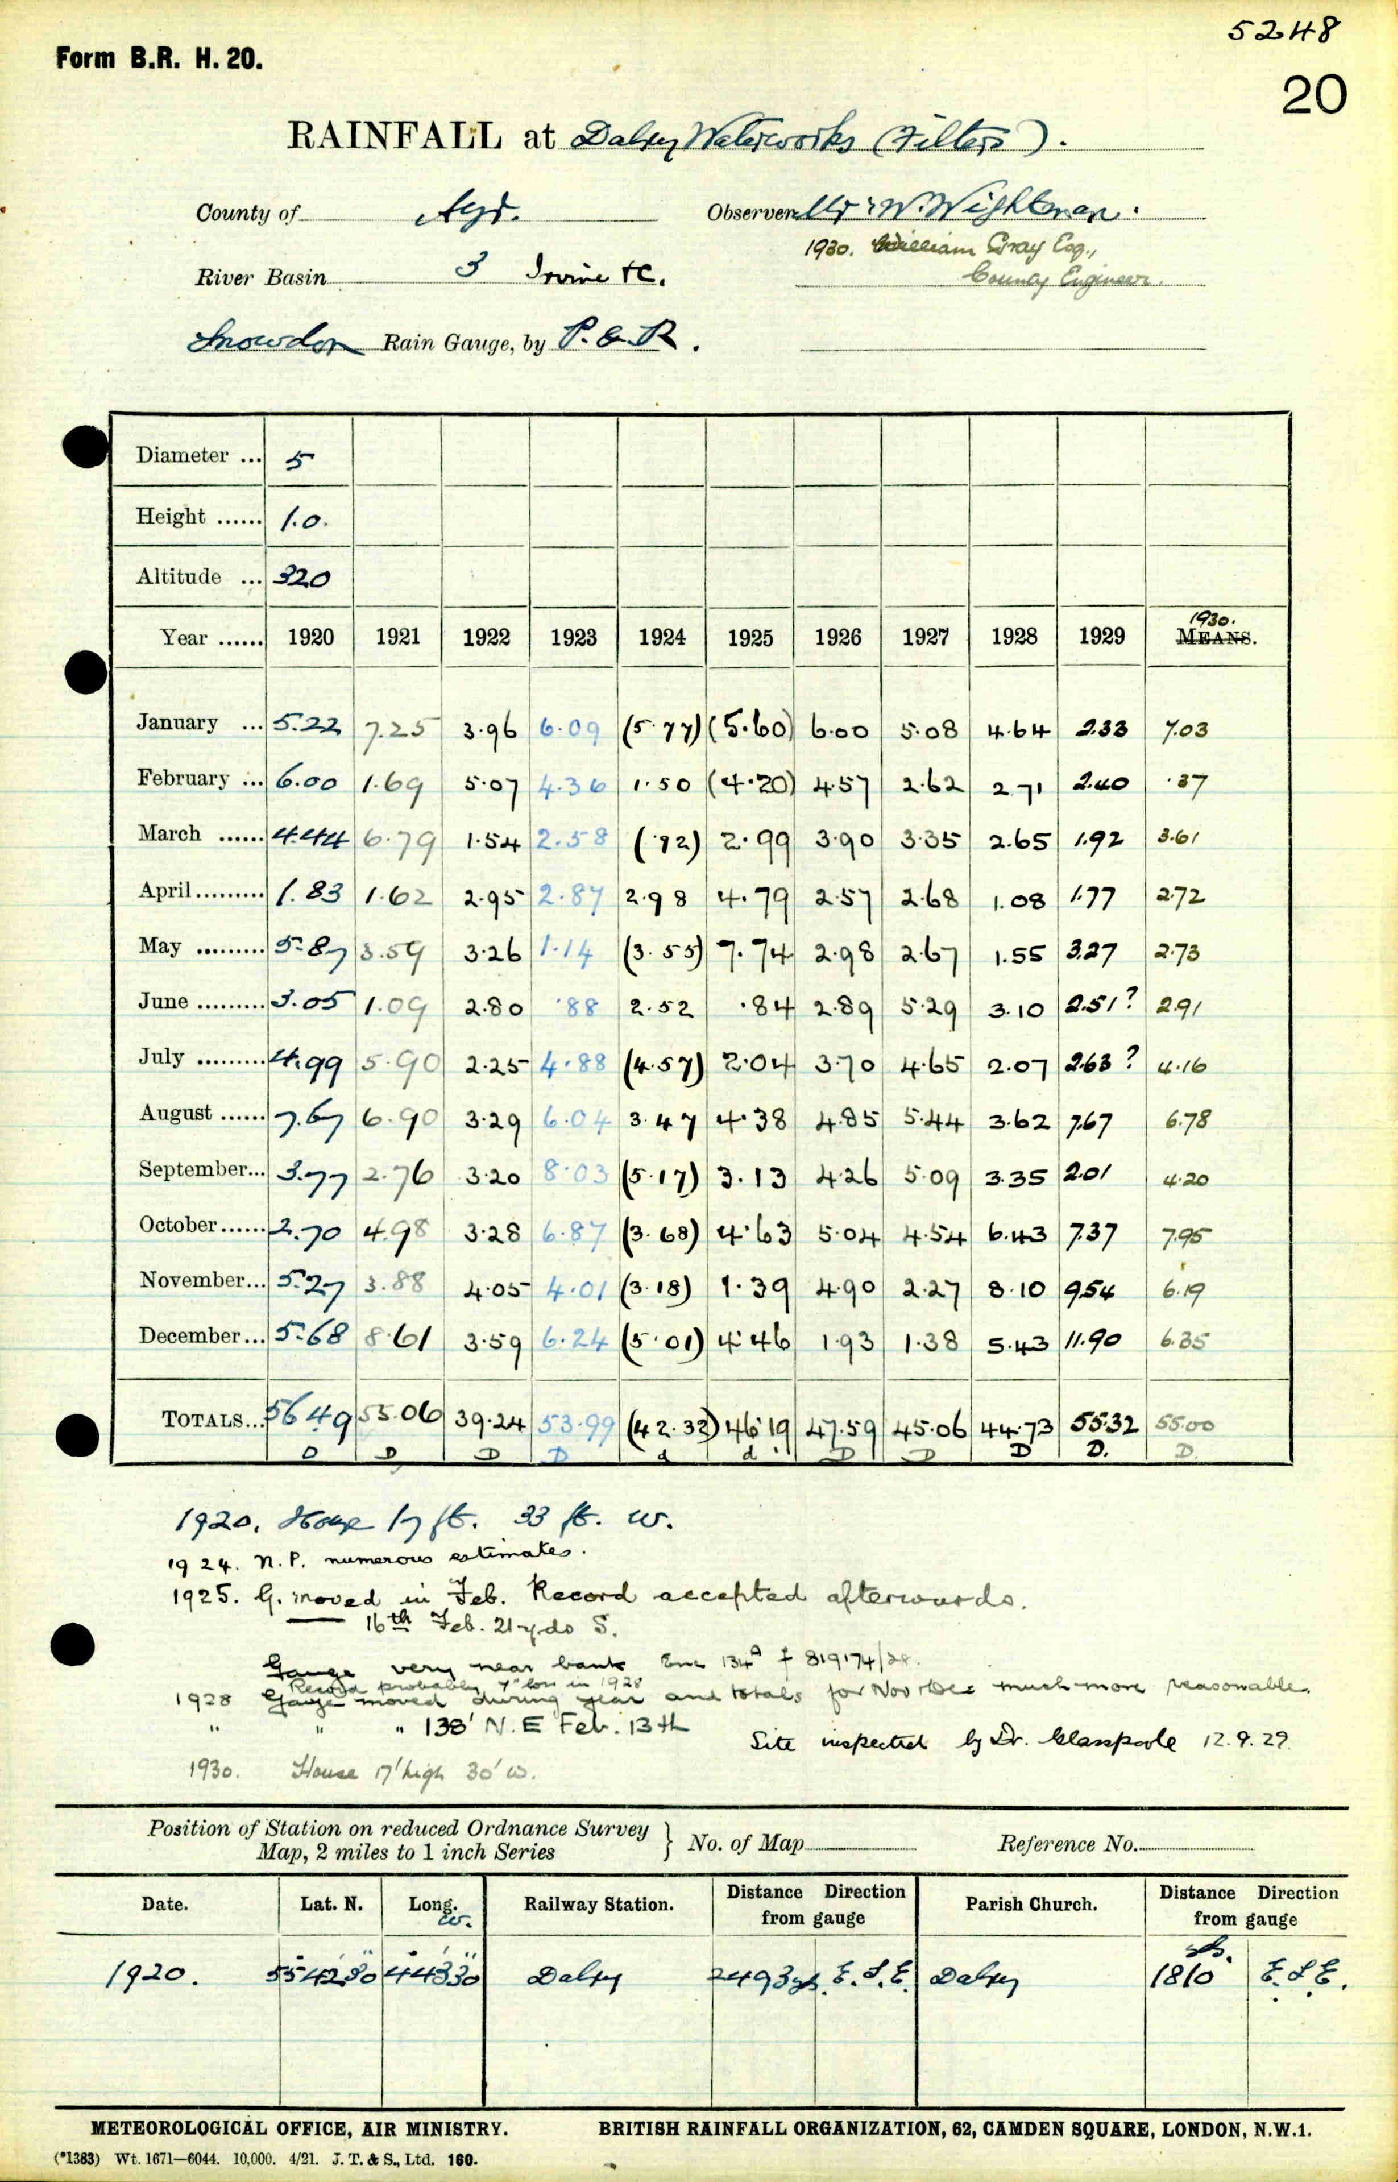 5248
Form B.R. H. 20.
20
RAINFALL at Dalry Waterworks (Filters).
County of Ayr. Observer Mr W. Wightman.
1930. William Gray Esq.,
River Basin 3 Irvine &c. County Engineer.
Snowdon Rain Gauge, by P. & R.
Diameter ... 5
Height ...... 1.0.
Altitude ... 320
1930.
Year ...... 1920 1921 1922 1923 1924 1925 1926 1927 1928 1929 MEANS.
January ... 5.22 7.25 3.96 6.09 (5.77) (5.60) 6.00 5.08 4.64 2.33 7.03
February ... 6.00 1.69 5.07 4.36 1.50 (4.20) 4.57 2.62 2.71 2.40 .37
March ...... 4.44 6.79 1.54 2.58 (.92) 2.99 3.90 3.35 2.65 1.92 3.61
April ......... 1.83 1.62 2.95 2.87 2.98 4.79 2.57 2.68 1.08 1.77 2.72
May ......... 5.87 3.59 3.26 1.14 (3.55) 7.74 2.98 2.67 1.55 3.27 2.73
June ......... 3.05 1.09 2.80 .88 2.52 .84 2.89 5.29 3.10 2.51? 2.91
July ......... 4.99 5.90 2.25 4.88 (4.57) 2.04 3.70 4.65 2.07 2.63? 4.16
August ...... 7.67 6.90 3.29 6.04 3.47 4.38 4.85 5.44 3.62 7.67 6.78
September... 3.77 2.76 3.20 8.03 (5.17) 3.13 4.26 5.09 3.35 2.01 4.20
October...... 2.70 4.98 3.28 6.87 (3.68) 4.63 5.04 4.54 6.43 7.37 7.95
November... 5.27 3.88 4.05 4.01 (3.18) 1.39 4.90 2.27 8.10 9.54 6.19
December... 5.68 8.61 3.59 6.24 (5.01) 4.46 1.93 1.38 5.43 11.90 6.35
TOTALS... 56.49 55.06 39.24 53.99 (42.32) 46.19 47.59 45.06 44.73 55.32 55.00
D D D D d d D D D D. D
1920. House 17 ft. 33 ft. W.
1924. N.P. numerous estimates.
1925. G. moved in Feb. Record accepted afterwards.
16th Feb. 21 yds S.
Gauge very near bank 819174/28.
Record probably low in 1928
1928 Gauge moved during year and totals for Nov & Dec much more reasonable.
" " " 138' N.E Feb. 13th
Site inspected by Dr. Glasspoole 12.9.29.
1930. House 17' high 30' W.
Position of Station on reduced Ordnance Survey Map, 2 miles to 1 inch Series } No. of Map Reference No.
Date. Lat. N. Long. W. Railway Station. Distance Direction from gauge Parish Church. Distance Direction from gauge
1920. 55° 42' 30" 4° 43' 30" Dalry 2493 yds. E.S.E. Dalry 1810 yds. E.S.E.
METEOROLOGICAL OFFICE, AIR MINISTRY. BRITISH RAINFALL ORGANIZATION, 62, CAMDEN SQUARE, LONDON, N.W.1.
(*1383) Wt. 1671—6044. 10,000. 4/21. J. T. & S., Ltd. 160.